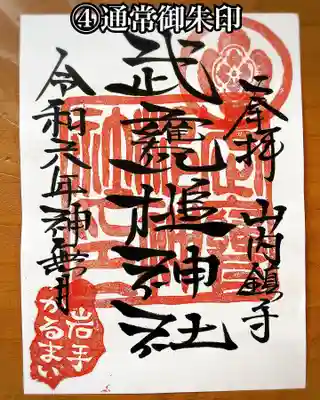 ④通常御朱印
奉拝 山内鎮守
武甕槌神社
令和元年神無月
岩手
かるまい